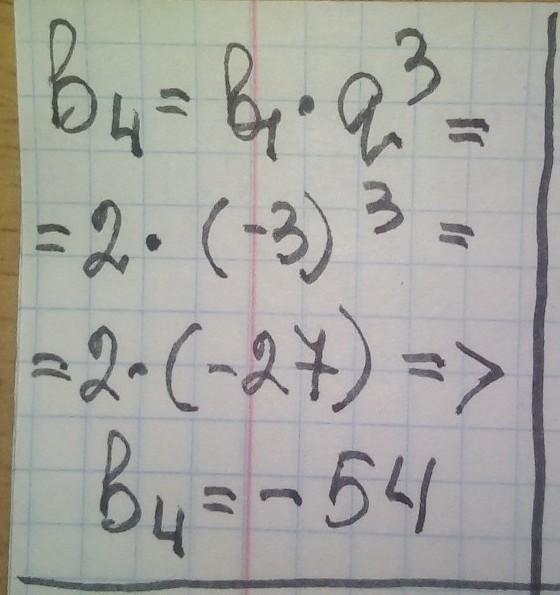 b₄ = b₁ · q³ =
= 2 · (-3)³ =
= 2 · (-27) =>
b₄ = - 54